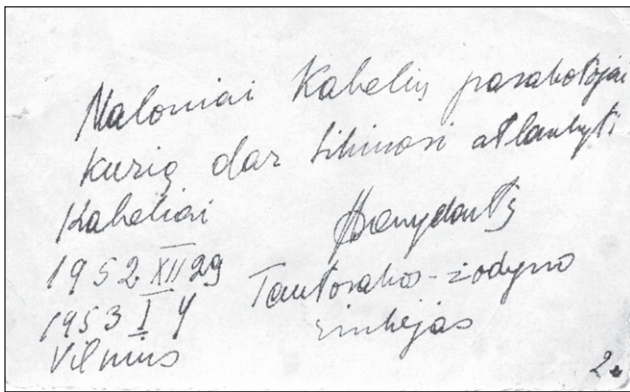 Maloniai Kabelių pasakotojai
kurią dar tikiuosi atlankyti
Kabeliai
1952.XII 29
1953 I 4
Vilnius
Tautosakos-žodyno
rinkėjas
2.